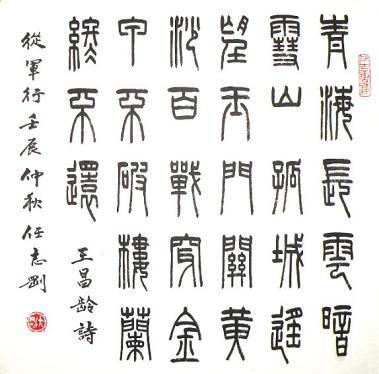 青海長雲暗
雪山孤城遥
望玉門關黄
沙百戰穿金
甲不破樓蘭
終不還
王昌龄詩
從軍行壬辰仲秋任志剛